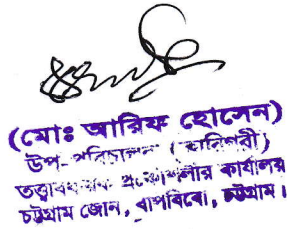 (মোঃ আরিফ হোসেন)
উপ-পরিচালক (কারিগরী)
তত্ত্বাবধায়ক প্রকৌশলীর কার্যালয়
চট্টগ্রাম জোন, বাপবিবো, চট্টগ্রাম।